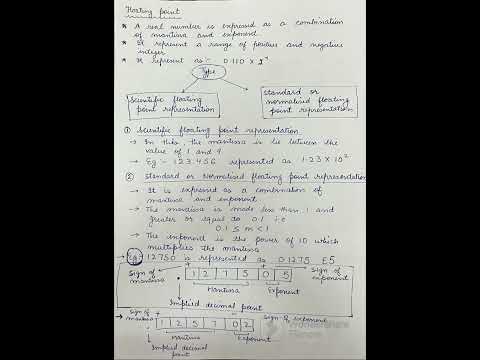 Floating point
* A real number is expressed as a combination
of mantissa and exponent
* It represent a range of positive and negative
integer
* It represent as :- 0.110 ×
Type
Scientific floating
point representation
standard or
normalised floating
point representation
① Scientific floating point representation
→ In this, the mantissa is lie between the
value of 1 and 9.
→ Eg :- 123.456 represented as 1.23 × 10²
② Standard or Normalised floating point representation
→ It is expressed as a combination of
mantissa and exponent
→ The mantissa is made less than 1 and
greater or equal to 0.1 i.e
0.1 ≤ m < 1
→ The exponent is the power of 10 which
multiplies the mantissa
→ Eg :- 12750 is represented as 0.1275 E5
Sign of
mantissa
+ . 1 2 7 5 + 0 5
Sign of
exponent
Mantissa Exponent
Implied decimal point
→ Sign of
mantissa
+ . 1 2 5 7 - 0 2
Sign of exponent
Mantissa Exponent
Implied decimal
point
Wondershare